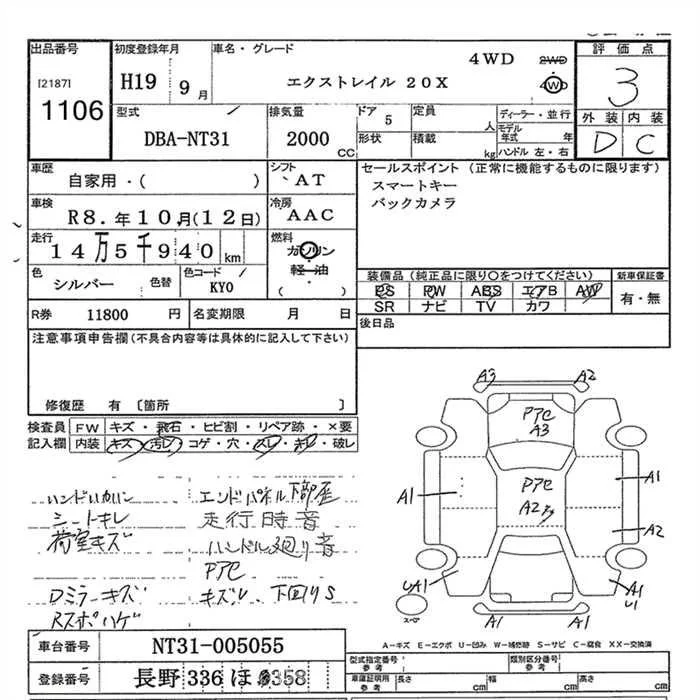 出品番号 初度登録年月 車名・グレード 4WD 2WD 評価点
[2187] H19 9月 エクストレイル 20X 4WD 3
1106 外装 内装
型式 排気量 ドア 5 定員 人 ディーラー・並行 D C
DBA-NT31 2000 CC 形状 積載 kg モデル年式 年
ハンドル 左・右
車歴 シフト セールスポイント(正常に機能するものに限ります)
自家用・( ) AT スマートキー
車検 冷房 バックカメラ
R8.年10月(12日) AAC
走行 燃料
14万5千940km ガソリン
軽・油
( )
色 色替 色コード 装備品(純正品に限り○をつけてください) 新車保証書
シルバー KY0 PS PW ABS エアB AW 有・無
SR ナビ TV カワ
R券 11800 円 名変期限 月 日 後日品
注意事項申告欄(不具合内容等は具体的に記入して下さい)
修復歴 有 〔箇所 〕
検査員 FW キズ・飛石・ヒビ割・リペア跡・×要
記入欄 内装 キズ・汚レ・コゲ・穴・スレ・キレ・破レ
シートキレ 走行時音
荷室キズ ハンドル廻り音
Dミラーキズ キズル、下回りS
A3 A2
A3
A2
A1 A1
A2
UA1 A1
A1 A1
スペアー
A-キズ E-エクボ U-凹み W-補修跡 S-サビ C-腐食 XX-交換済
車台番号 NT31-005055 型式指定番号 参考 類別区分番号 参考
登録番号 長野 336 ほ 車庫証明用 参考 長さ cm 幅 cm 高さ cm